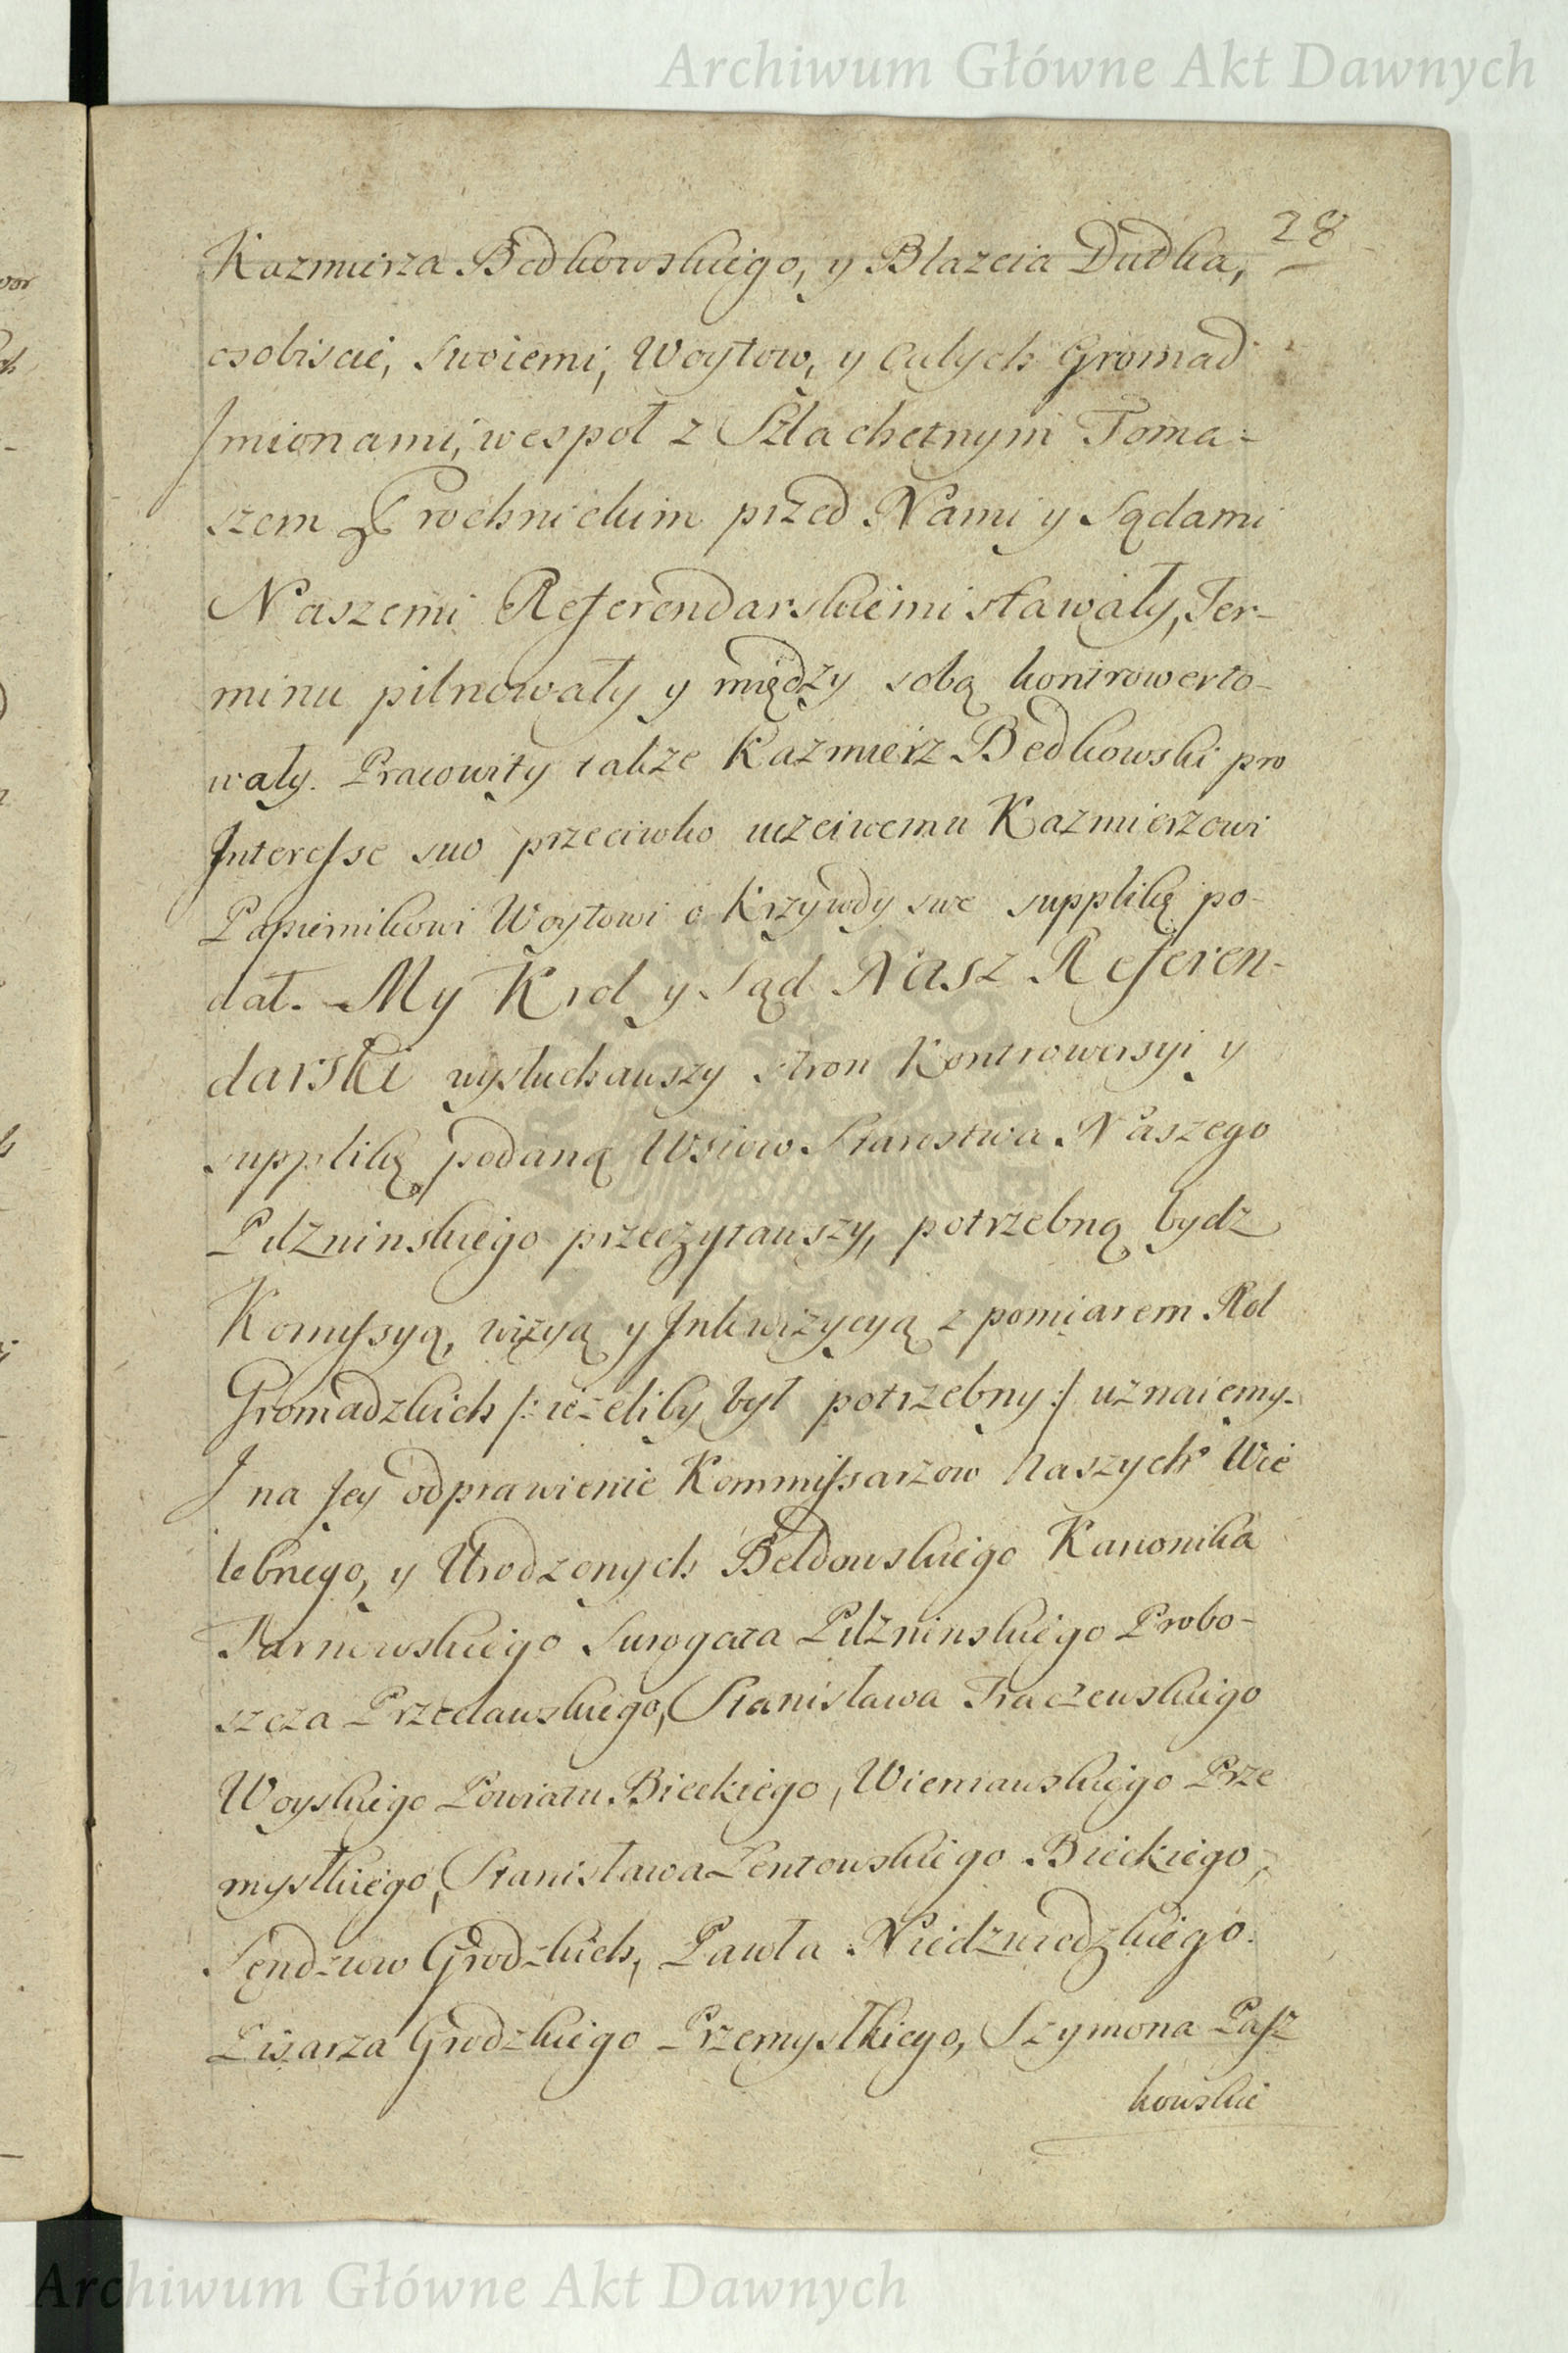 Archiwum Główne Akt Dawnych
28
Kazmierza Bedkowskiego, y Blazeia Dudka,
osobiscie, Swoiemi, Woytow, y Całych Gromad
Jmionami, wespoł z Szlachetnym Toma-
szem Prochnickim przed Nami y Sądami
Naszemi Referendarskiemi stawały, Ter-
minu pilnowały y między sobą kontrowerto-
wały. Pracowity także Kazmierz Bedkowski pro
Interesse suo przeciwko uczciwemu Kazmierzowi
Papiernikowi Woytowi o Krzywdy swe supplikę po-
dał. My Krol y Sąd Nasz Referen-
darski wysłuchawszy stron Kontrowersyi y
supplikę podaną Wsiow Starostwa Naszego
Pilzninskiego przeczytawszy, potrzebną bydz
Komissyą, wizyą y Inkwizycyą z pomiarem Rol
Gromadzkich /: ieżeliby był potrzebny :/ uznaiemy.
J na Jey odprawienie Kommissarzow Naszych Wie
lebnego, y Urodzonych Bełdowskiego Kanonika
Tarnowskiego Surogata Pilzninskiego Probo-
szcza Przecławskiego, Stanisława Traczewskiego
Woyskiego Powiatu Bieckiego, Wieniawskiego Prze
mysłkiego, Stanisława Lentowskiego Bieckiego,
Sendziow Grodzkich, Pawła Niedzwiedzkiego
Pisarza Grodzkiego Przemysłkiego, Szymona Pasz
kowskie
Archiwum Główne Akt Dawnych